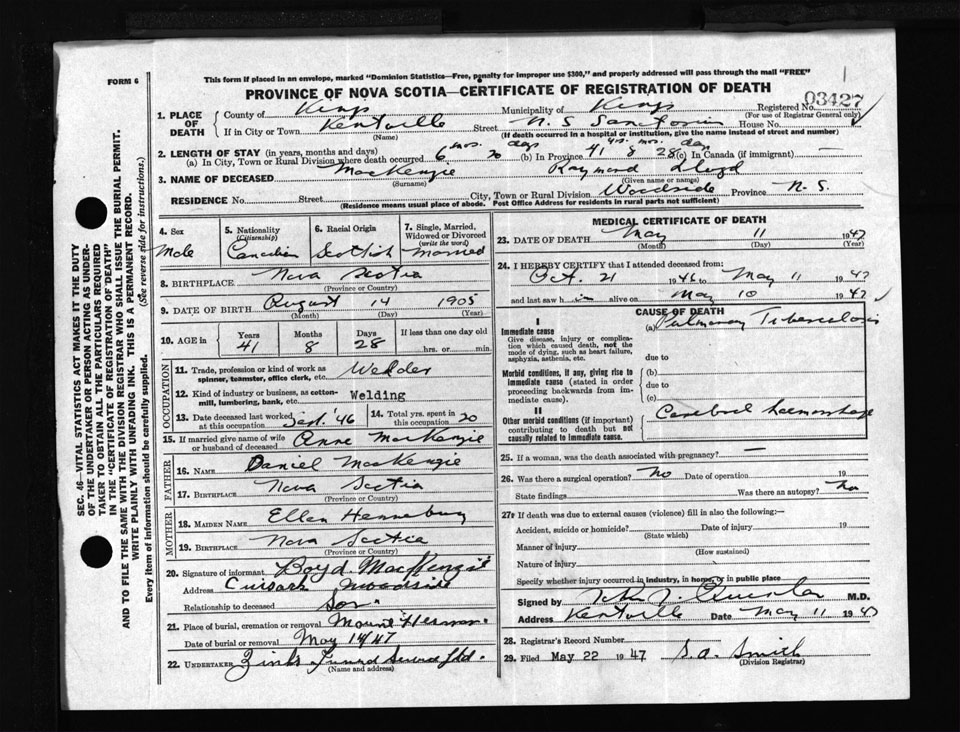 This form if placed in an envelope, marked "Dominion Statistics—Free, penalty for improper use $300," and properly addressed will pass through the mail "FREE"
FORM 6
PROVINCE OF NOVA SCOTIA—CERTIFICATE OF REGISTRATION OF DEATH
Registered No. 03427
(For use of Registrar General only)
1. PLACE OF DEATH
County of Kings Municipality of Kings
If in City or Town Kentville Street N. S. Sanatorium House No.
(Name) (If death occurred in a hospital or institution, give the name instead of street and number)
2. LENGTH OF STAY (in years, months and days)
(a) In City, Town or Rural Division where death occurred 6 mos. 20 days (b) In Province 41 yrs. 8 mos. 28 days (c) In Canada (if immigrant) —
3. NAME OF DECEASED MacKenzie Raymond Lloyd
(Surname) (Given name or names)
RESIDENCE No. Street City, Town or Rural Division Woodside Province N. S.
(Residence means usual place of abode. Post Office Address for residents in rural parts not sufficient)
4. Sex Male
5. Nationality (Citizenship) Canadian
6. Racial Origin Scottish
7. Single, Married, Widowed or Divorced (write the word) Married
8. BIRTHPLACE Nova Scotia
(Province or Country)
9. DATE OF BIRTH August 14 1905
(Month) (Day) (Year)
10. AGE in Years 41 Months 8 Days 28 If less than one day old hrs. or min.
OCCUPATION
11. Trade, profession or kind of work as spinner, teamster, office clerk, etc. Welder
12. Kind of industry or business, as cotton-mill, lumbering, bank, etc. Welding
13. Date deceased last worked at this occupation Sept. '46
14. Total yrs. spent in this occupation 20
15. If married give name of wife or husband of deceased Anne MacKenzie
FATHER
16. NAME Daniel MacKenzie
17. BIRTHPLACE Nova Scotia
(Province or Country)
MOTHER
18. MAIDEN NAME Ellen
19. BIRTHPLACE Nova Scotia
(Province or Country)
20. Signature of informant Boyd MacKenzie
Address Woodside
Relationship to deceased Son
21. Place of burial, cremation or removal Mount Hermon
Date of burial or removal May 14/47
22. UNDERTAKER Zinks Funeral Service Ltd.
(Name and address)
MEDICAL CERTIFICATE OF DEATH
23. DATE OF DEATH May 11 1947
(Month) (Day) (Year)
24. I HEREBY CERTIFY that I attended deceased from:
Oct. 21 1946 to May 11 1947
and last saw him alive on May 10 1947
CAUSE OF DEATH
I
Immediate cause
Give disease, injury or complication which caused death, not the mode of dying, such as heart failure, asphyxia, asthenia, etc.
(a) Pulmonary Tuberculosis
due to
Morbid conditions, if any, giving rise to immediate cause (stated in order proceeding backwards from immediate cause).
(b)
due to
(c)
II
Other morbid conditions (if important) contributing to death but not causally related to immediate cause.
Cerebral haemorrhage
25. If a woman, was the death associated with pregnancy? —
26. Was there a surgical operation? No Date of operation 19
State findings Was there an autopsy? No
27. If death was due to external causes (violence) fill in also the following:—
Accident, suicide or homicide? Date of injury 19
(State which)
Manner of injury
(How sustained)
Nature of injury
Specify whether injury occurred in industry, in home, or in public place
Signed by M.D.
Address Kentville Date May 11 1947
28. Registrar's Record Number
29. Filed May 22 1947 S. A. Smith
(Division Registrar)
SEC. 46—VITAL STATISTICS ACT MAKES IT THE DUTY
OF THE UNDERTAKER OR PERSON ACTING AS UNDER-
TAKER TO OBTAIN ALL THE PARTICULARS REQUIRED
IN THE "CERTIFICATE OF REGISTRATION OF DEATH"
AND TO FILE THE SAME WITH THE DIVISION REGISTRAR WHO SHALL ISSUE THE BURIAL PERMIT.
WRITE PLAINLY WITH UNFADING INK. THIS IS A PERMANENT RECORD.
Every item of information should be carefully supplied. (See reverse side for instructions.)